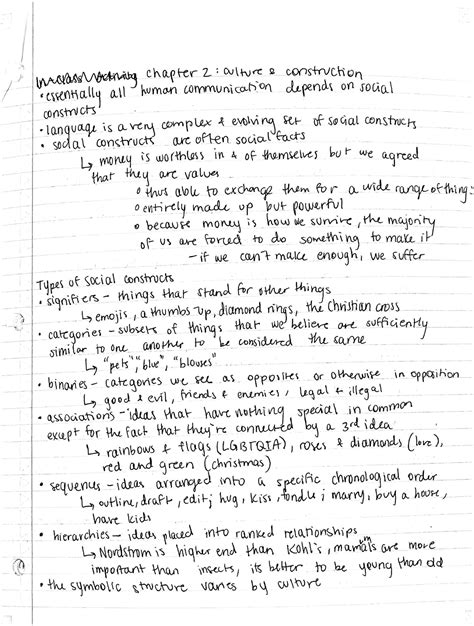 chapter 2: culture & construction
• essentially all human communication depends on social
constructs
• language is a very complex & evolving set of social constructs
• social constructs are often social facts
↳ money is worthless in & of themselves but we agreed
that they are values
◦ thus able to exchange them for a wide range of things
◦ entirely made up but powerful
◦ because money is how we survive, the majority
of us are forced to do something to make it
– if we can't make enough, we suffer
Types of social constructs
• signifiers – things that stand for other things
↳ emojis, a thumbs up, diamond rings, the Christian cross
• categories – subsets of things that we believe are sufficiently
similar to one another to be considered the same
↳ "pets", "blue", "blouses"
• binaries – categories we see as opposites or otherwise in opposition
↳ good & evil, friends & enemies, legal & illegal
• associations – ideas that have nothing special in common
except for the fact that they're connected by a 3rd idea
↳ rainbows & flags (LGBTQIA), roses & diamonds (love),
red and green (christmas)
• sequences – ideas arranged into a specific chronological order
↳ outline, draft, edit; hug, kiss, fondle; marry, buy a house,
have kids
• hierarchies – ideas placed into ranked relationships
↳ Nordstrom is higher end than Kohl's, mammals are more
important than insects, its better to be young than old
• the symbolic structure varies by culture